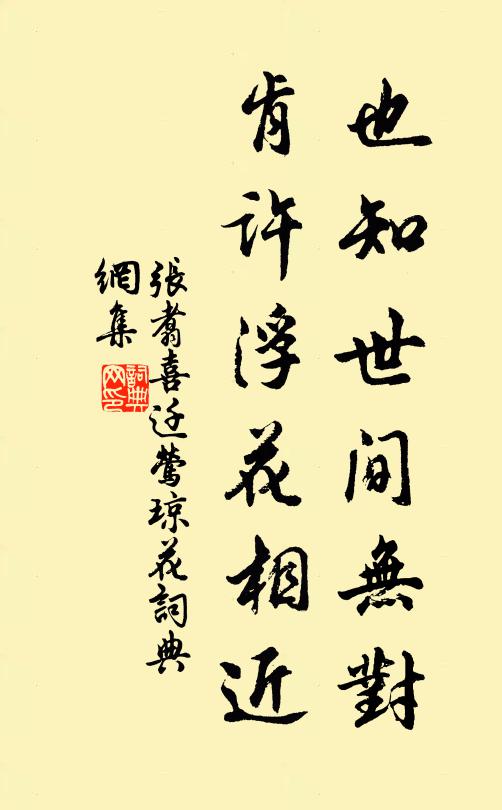 也知世間無對
肯許浮花相近
張翥喜迁鶯琼花詞典
網集
詞典
网印